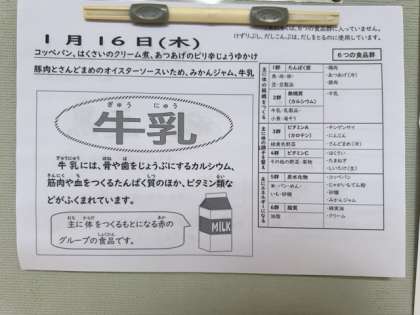 １月１６日(木)
コッペパン、はくさいのクリーム煮、あつあげのピリ辛じょうゆかけ
豚肉とさんどまめのオイスターソースいため、みかんジャム、牛乳
ぎゅう にゅう
牛乳
ぎゅうにゅう ほね は
牛乳には、骨や歯をじょうぶにするカルシウム、
きんにく ち しつ るい
筋肉や血をつくるたんぱく質のほか、ビタミン類な
どがふくまれています。
おも からだ あか
主に体をつくるもとになる赤の
しょくひん
グループの食品です。
MILK
は、6つの食品群に入っていません。
けずりぶし、だしこんぶは、だしをとるのに使用しています。
６つの食品群
1群 たんぱく質
魚・肉・卵・
豆・豆製品
・鶏肉
・あつあげ(冷)
・豚肉
2群 無機質
(カルシウム)
牛乳・乳製品・
小魚・海そう
・牛乳
3群 ビタミンA
(カロテン)
緑黄色野菜
・チンゲンサイ
・にんじん
・さんどまめ(冷)
4群 ビタミンC
その他の野菜・果物
・はくさい
・たまねぎ
5群 炭水化物
米・パン・めん・
いも・砂糖
・コッペパン
・じゃがいもでん粉
・砂糖
・みかんジャム
6群 脂質
油脂
・綿実油
・クリーム